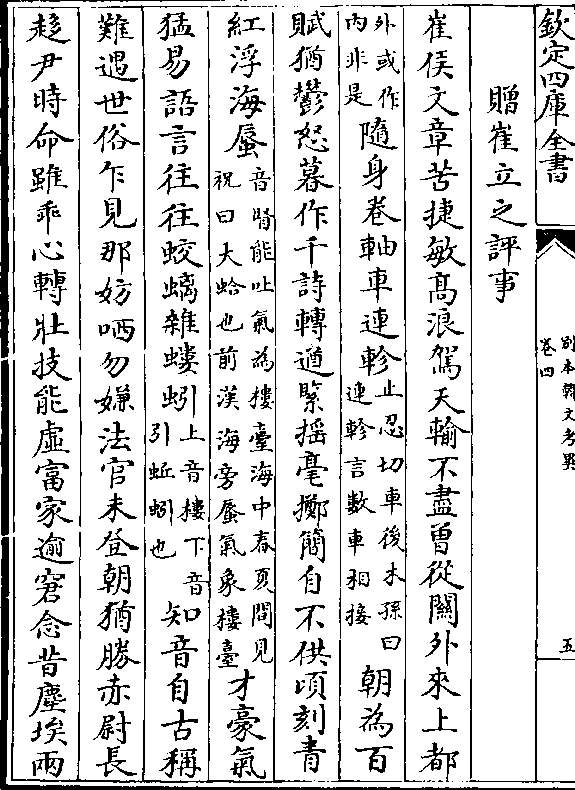 欽定四庫全書
別本韓文考異
卷四
五
贈崔立之評事
崔侯文章苦捷敏高浪駕天輸不盡曾從關外來上都
外或作
內非是
隨身卷軸車連軫
止忍切車後木孫曰
連軫言數車相接
朝為百
賦猶鬱怒暮作千詩轉遒緊揺毫擲簡自不供頃刻青
紅浮海蜃
音腎能吐氣為樓臺海中春夏間見
祝曰大蛤也前漢海旁蜃氣象樓臺
才豪氣
猛易語言往往蛟螭雜螻蚓
上音樓下音
引蚯蚓也
知音自古稱
難遇世俗乍見那妨哂勿嫌法官未登朝猶勝赤尉長
趍尹時命雖乖心轉壯技能虛富家逾窘念昔塵埃兩